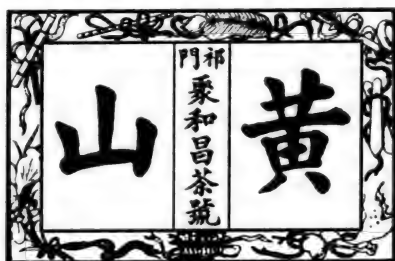 黄
祁門
聚和昌茶號
山